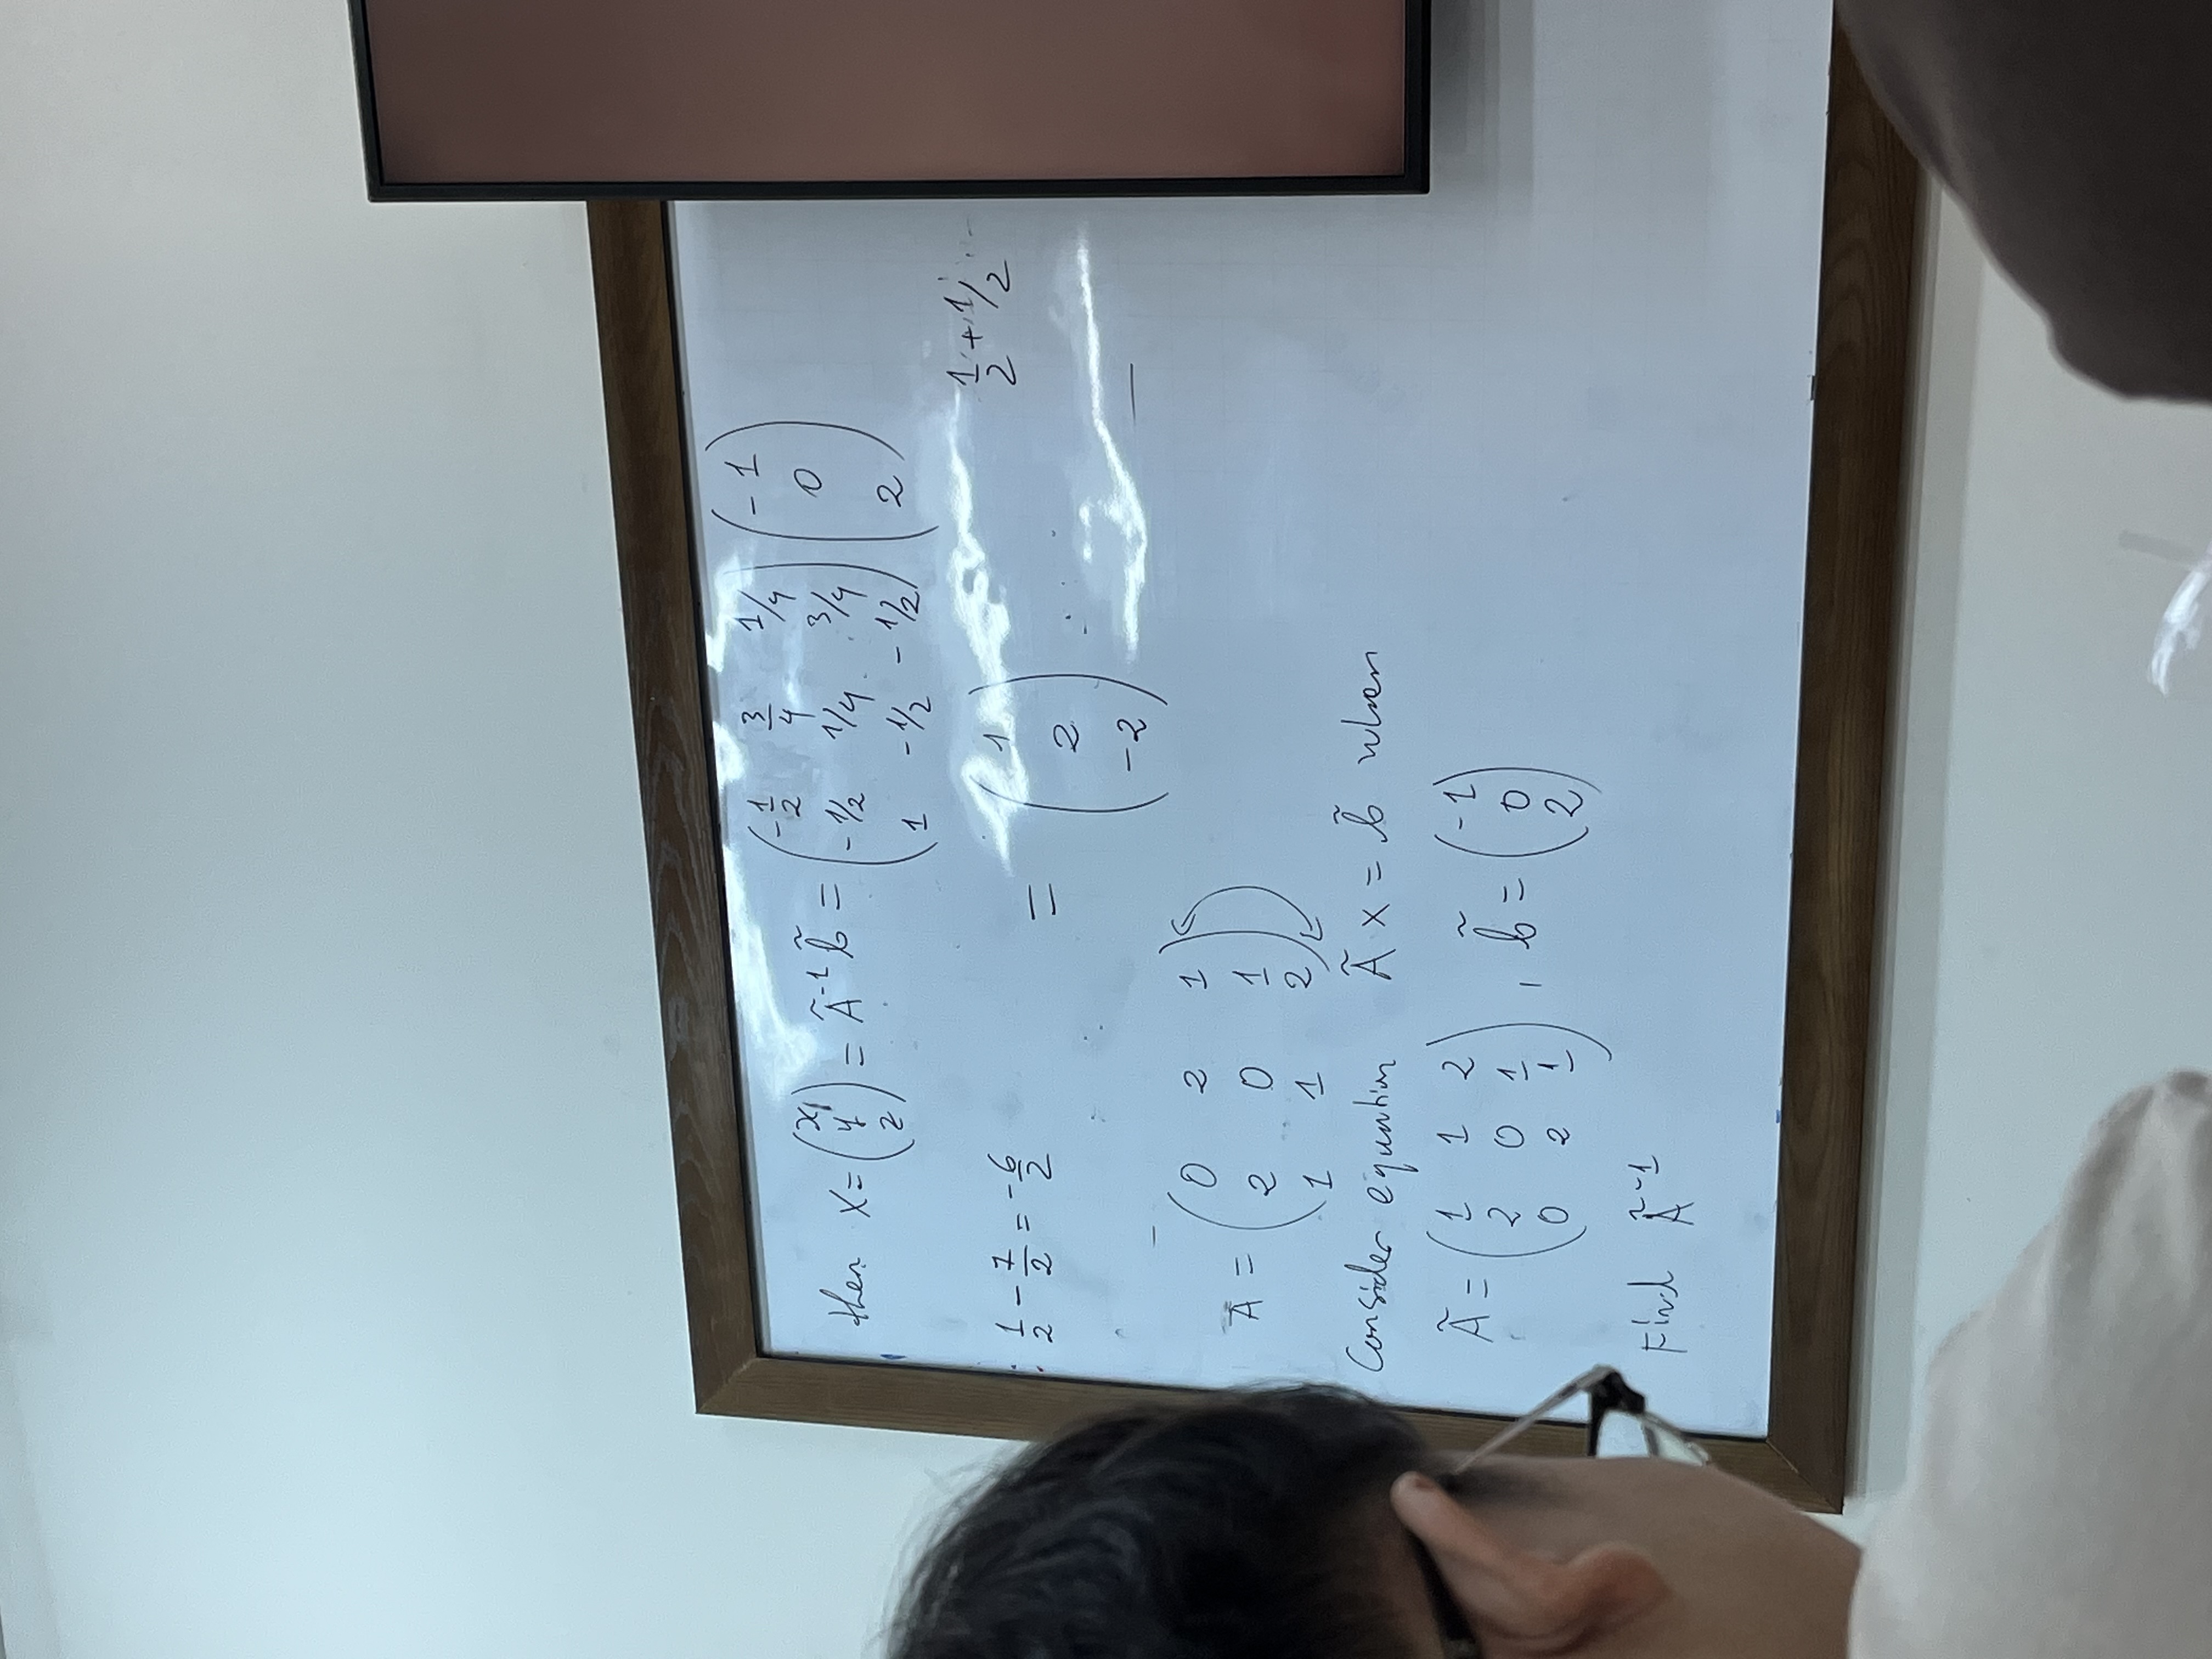 then X = (x y z) = Ã⁻¹ b̃ = (-1/2 3/4 1/4 -1/2 1/4 3/4 1 -1/2 -1/2) (-1 0 2)
1/2 - 7/2 = -6/2
= (1 2 -2)
1/2 + 1/2
A = (0 2 1
2 0 1
1 1 2)
Consider equation Ã x = b̃ when
Ã = (1 1 2
2 0 1
0 2 1), b̃ = (-1 0 2)
Find Ã⁻¹